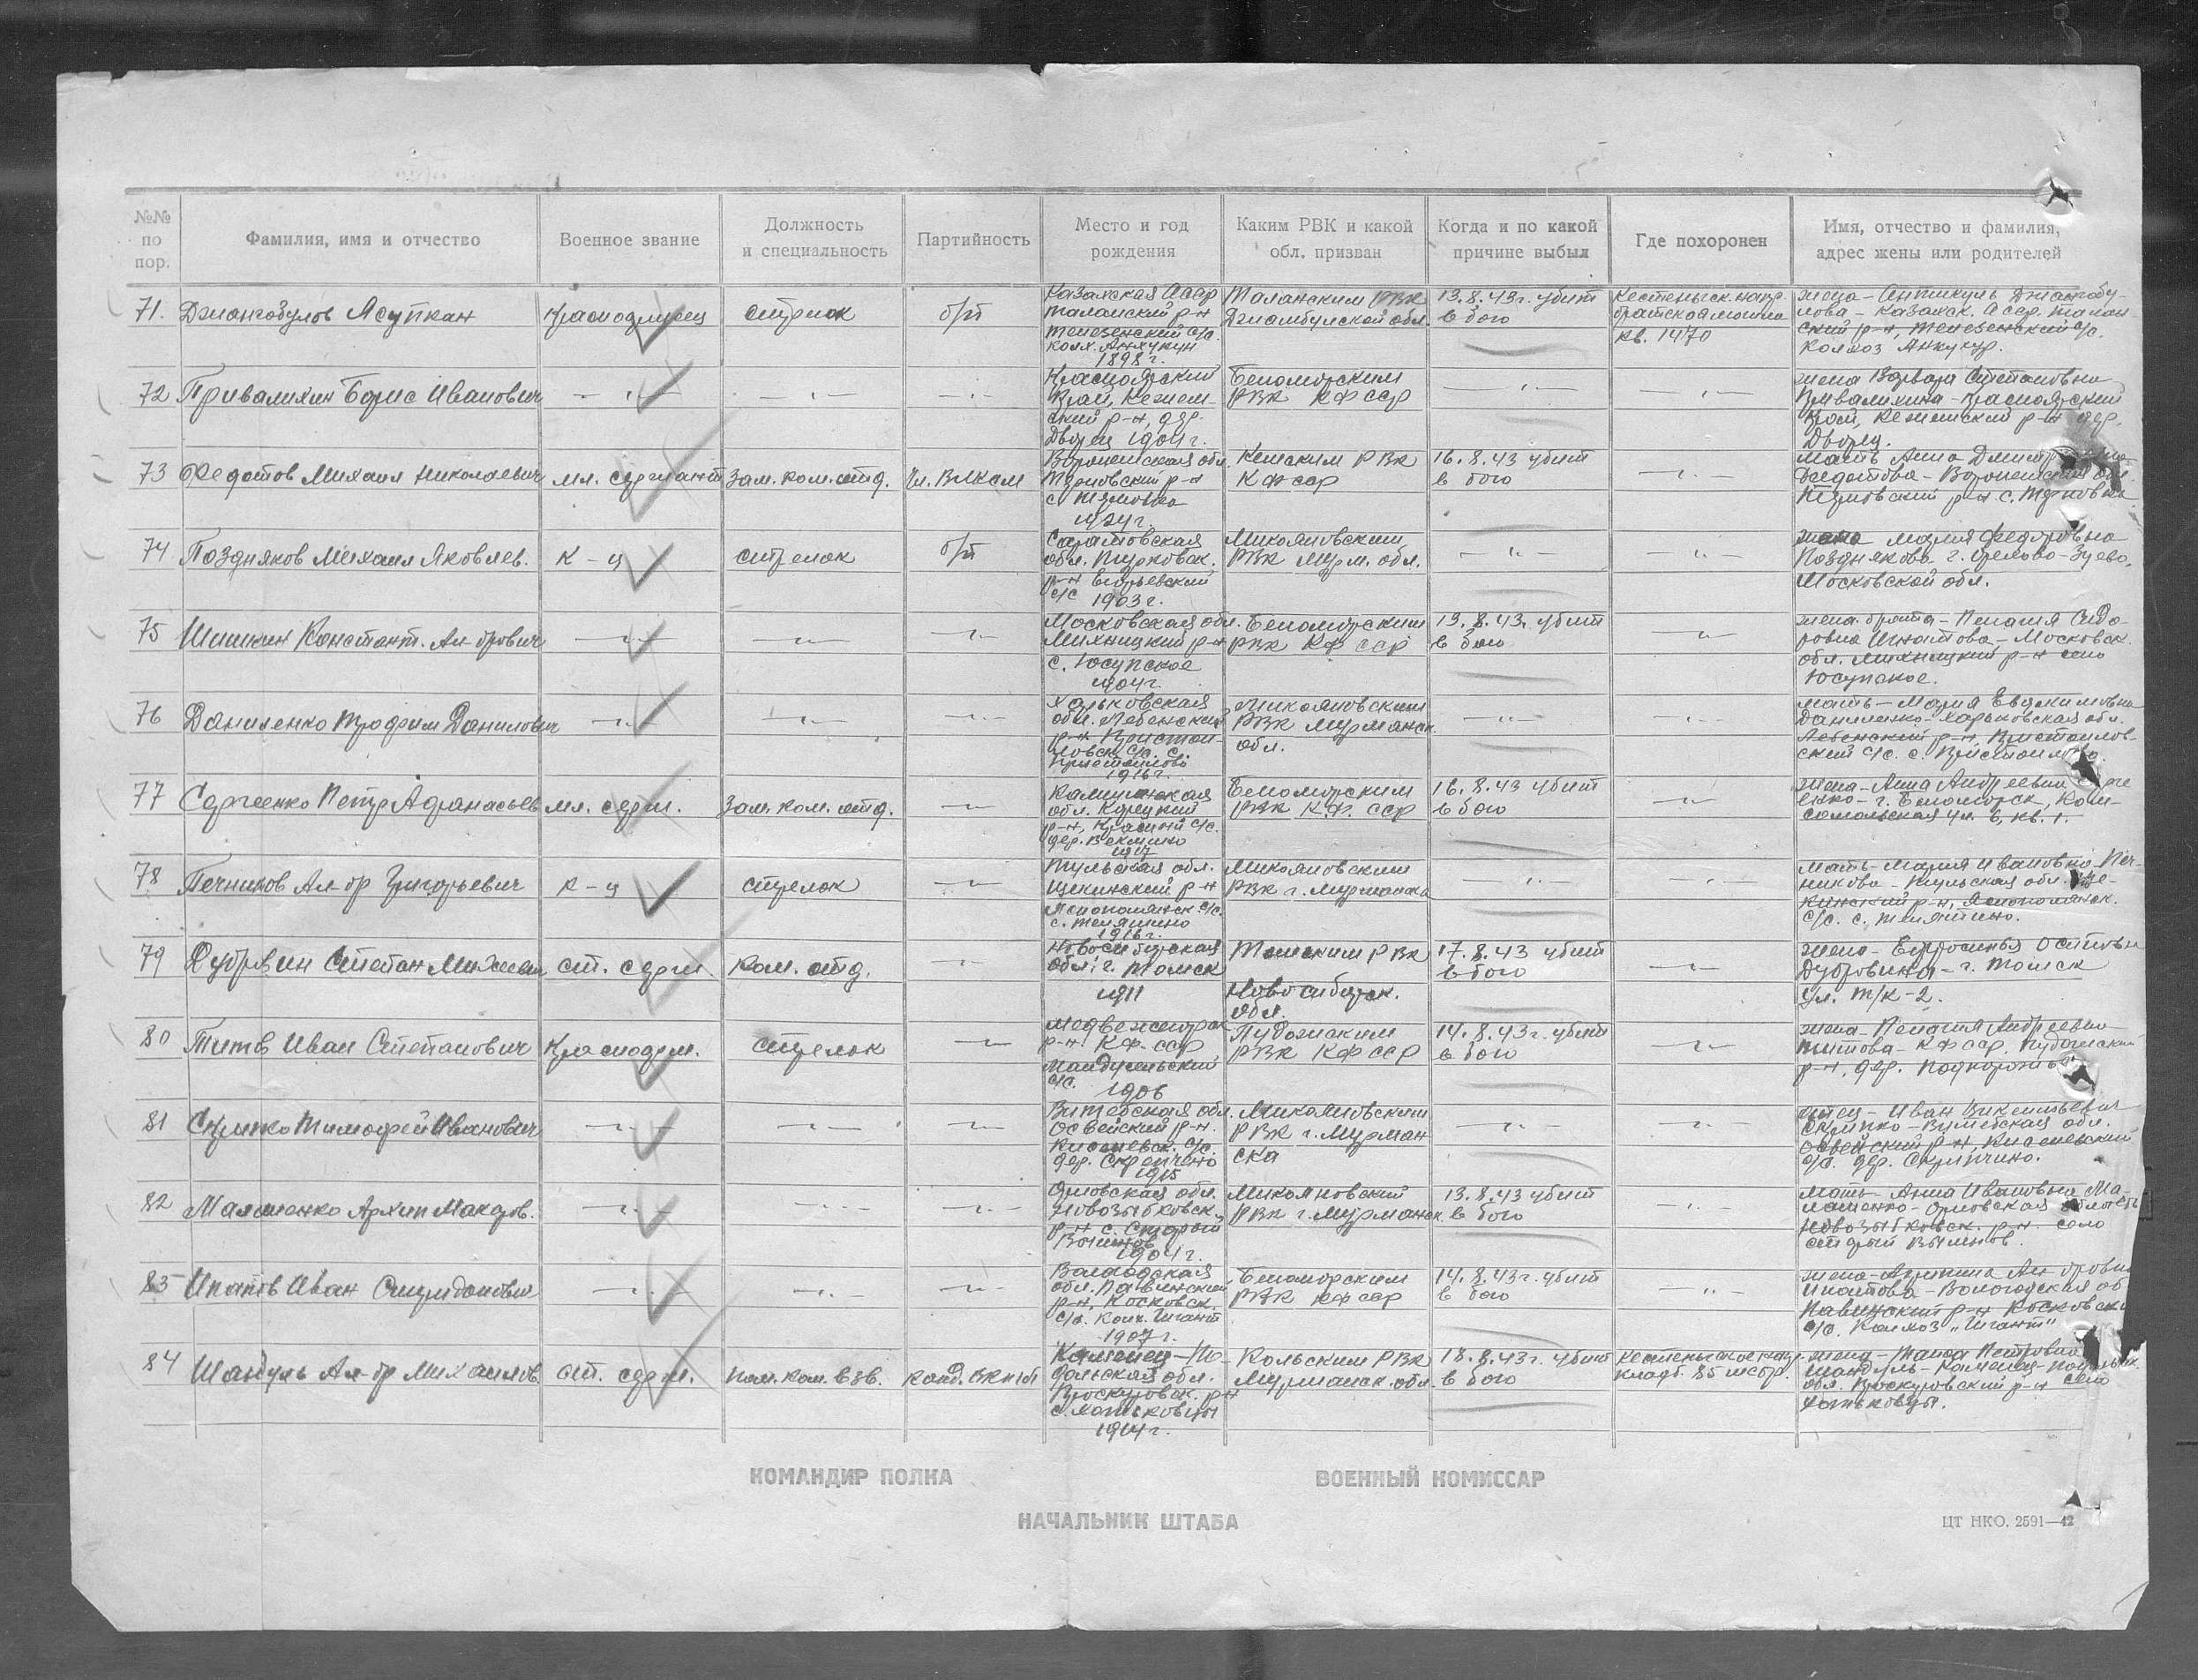 №№ по пор.
Фамилия, имя и отчество
Военное звание
Должность и специальность
Партийность
Место и год рождения
Каким РВК и какой обл. призван
Когда и по какой причине выбыл
Где похоронен
Имя, отчество и фамилия, адрес жены или родителей
71. Джангобулов Ясупкан
Красноармеец
стрелок
б/п
Казахская АССР
Таланский р-н
1898 г.
Таланским РВК
Джамбулской обл.
13.8.43 г. убит
в бою
братская могила
кв. 1470
жена –
колхоз
72 Привалихин Борис Иванович
— " —
— " —
— " —
Красноярский
край, Кежем
ский р-н, дер.
Дворец 1904 г.
Беломорским
РВК КФССР
— " —
— " —
жена Варвара Степановна
Привалихина – Красноярский
край, Кежемский р-н дер.
Дворец.
73 Федотов Михаил Николаевич
мл. сержант
Зам. ком. отд.
Чл. ВЛКСМ
Воронежская обл.
Терновский р-н
с Терновка
1924 г.
Кемским РВК
КФССР
16.8.43 убит
в бою
— " —
мать Анна
Федотова – Воронежская обл.
Терновский р-н с. Терновка
74 Поздняков Михаил Яковлев.
К-ц
стрелок
б/п
Саратовская
обл. Турковск.
р-н Егорьевский
с/с 1903 г.
Микояновским
РВК Мурм. обл.
— " —
— " —
жена Мария Федоровна
Позднякова г. Орехово-Зуево,
Московской обл.
75 Шишкин Константин. Ал-дрович
— " —
— " —
— " —
Московская обл.
Михницкий р-н
с. Юсупское
1904 г.
Беломорским
РВК КФССР
13.8.43. убит
в бою
— " —
жена брата – Пелагия Сидо-
ровна Игнатова – Московск.
обл. Михницкий р-н село
Юсупское.
76 Даниленко Трофим Данилович
— " —
— " —
— " —
Харьковская
1916 г.
Микояновским
РВК Мурманск
обл.
— " —
— " —
мать – Мария Евдокимовна
Даниленко – Харьковская обл.
77 Сергеенко Петр Афанасьев
мл. серж.
Зам. ком. отд.
— " —
р-н, Красный с/с.
1917
Беломорским
РВК К.Ф. ССР
16.8.43 убит
в бою
— " —
жена – Анна Андреевна Серге
енко – г. Беломорск, Ком-
сомольская ул. 6, кв. 1.
78 Печников Ал-др Григорьевич
К-ц
стрелок
— " —
Тульская обл.
Щекинский р-н
Яснополянск с/с.
с. Телятино
1916 г.
Микояновским
РВК г. Мурманска
— " —
— " —
мать – Мария Ивановна Печ-
никова – Тульская обл. Ще-
кинский р-н, Яснополянск.
с/с. с. Телятино.
79 Дубровин Степан Михеевич
ст. серж.
Ком. отд.
— " —
Новосибирская
обл. г. Томск
1911
Томским РВК
Новосибирск.
обл.
17.8.43 убит
в бою
— " —
жена – Ефросинья Осиповна
Дубровина – г. Томск
ул. Т/К-2.
80 Титов Иван Степанович
Красноарм.
стрелок
— " —
Медвежегорск
р-н. КФССР
с/с. 1906
Пудожским
РВК КФССР
14.8.43 г. убит
в бою
— " —
жена – Пелагия Андреевна
Титова – КФССР, Пудожский
р-н, дер. Подпорожье
81 Скрипко Тимофей Иванович
— " —
— " —
— " —
Витебская обл.
Освейский р-н.
Киселевск. с/с.
1915
Микояновским
РВК г. Мурман
ска
— " —
— " —
отец – Иван Викентьевич
Скрипко – Витебская обл.
Освейский р-н Киселевский
82 Малашенко Архип Макаров.
— " —
— " —
— " —
Орловская обл.
Новозыбковск.
р-н с. Старый
1904 г.
Микояновский
РВК г. Мурманск
13.8.43 убит
в бою
— " —
мать – Анна Ивановна Ма-
лашенко – Орловская область
Новозыбковск. р-н. село
83 Ипатов Иван Спиридонович
— " —
— " —
— " —
Вологодская
обл. Павинский
р-н, Косковск.
с/с. Колх. Гигант
1907 г.
Беломорским
РВК КФССР
14.8.43 г. убит
в бою
— " —
жена – Агрипина Ал-дровна
Ипатова – Вологодская об
Павинский р-н Косковский
с/с. Колхоз „Гигант"
84 Шандуль Ал-др Михайлов.
ст. серж.
Пом. ком. взв.
канд. ВКП(б)
Каменец-По-
дольская обл.
Проскуровск. р-н
с. Хотьковцы
1914 г.
Кольским РВК
Мурманск. обл.
18.8.43 г. убит
в бою
кладб. 85
жена – Таиса Петровна
Шандуль – Каменец-Подольск.
обл. Проскуровский р-н село
Хотьковцы.
КОМАНДИР ПОЛКА
ВОЕННЫЙ КОМИССАР
НАЧАЛЬНИК ШТАБА
ЦТ НКО. 2591—42